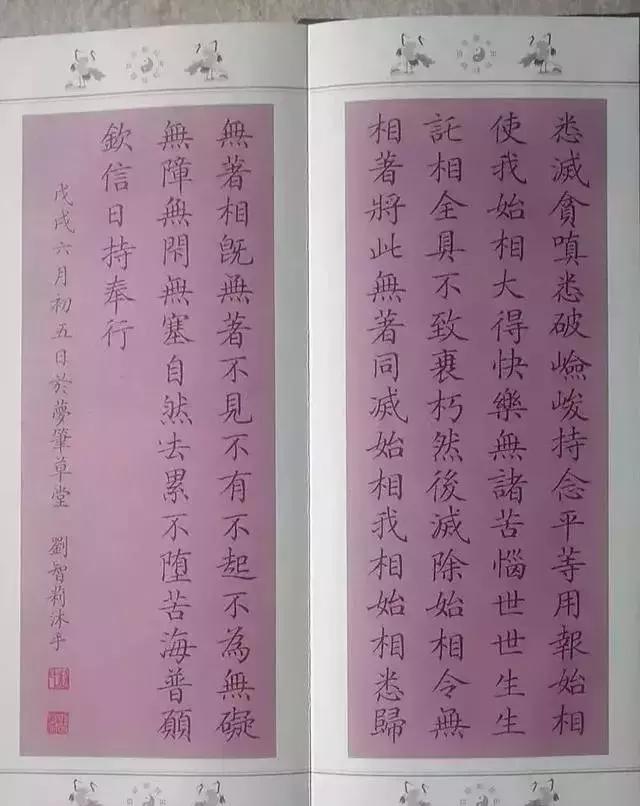 悉滅貪嗔悉破嶮峻持念平等用報始相
使我始相大得快樂無諸苦惱世世生生
託相全具不致衰朽然後滅除始相令無
相著將此無著同滅始相我相始相悉歸
無著相既無著不見不有不起不為無礙
無障無閑無塞自然去累不堕苦海普願
欽信日持奉行
戊戌六月初五日於夢筆草堂 劉智莉沐手